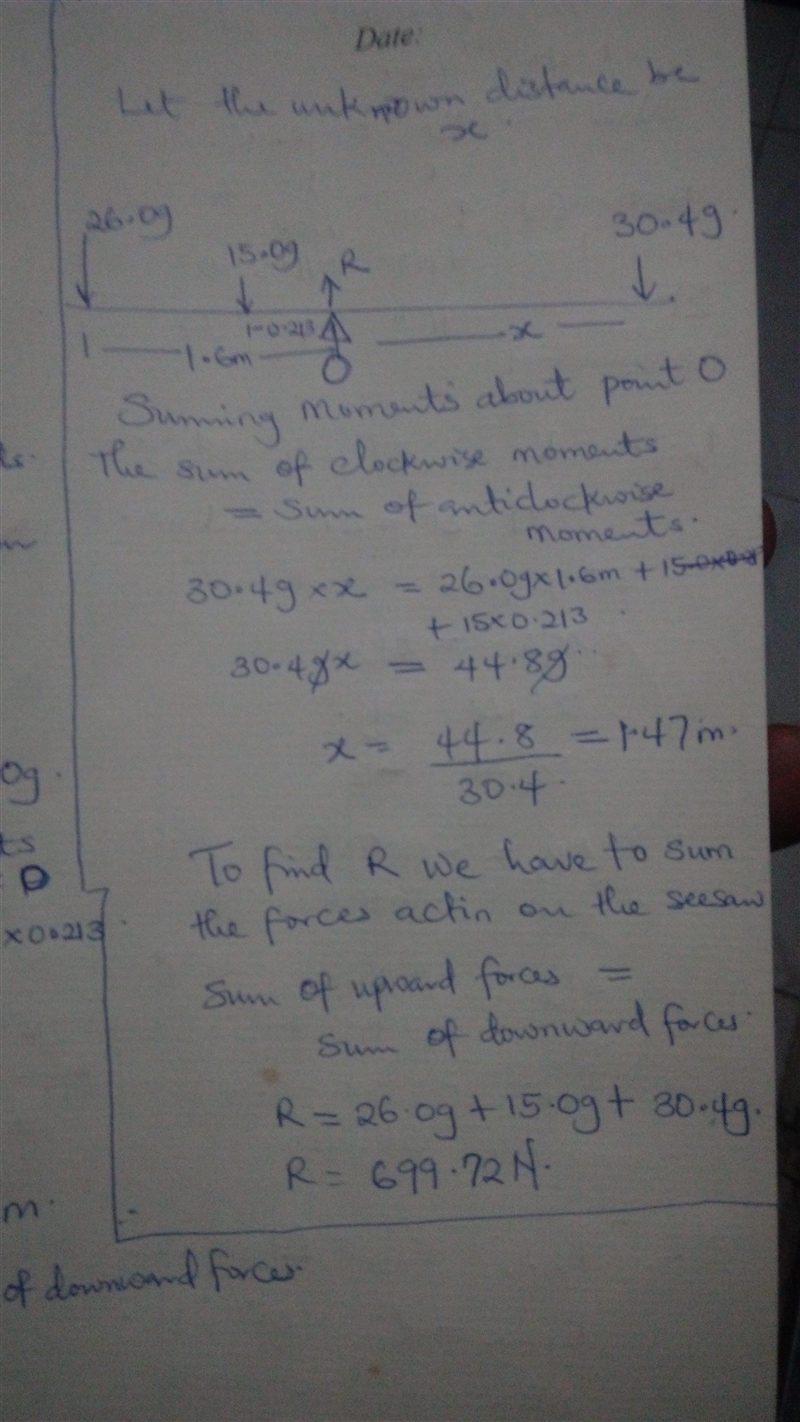 Date:
Let the unknown distance be
x.
26.0g
15.0g
R
30.4g.
0.213
1.6m
x
O
Summing moments about point O
ts.
The sum of clockwise moments
= sum of anticlockwise
moments.
30.4g × x = 26.0g×1.6m + 15.0×0.2
+ 15×0.213
30.4gx = 44.8g
x = 44.8 = 1.47m.
30.4
0g.
ts
To find R we have to sum
the forces actin on the seesaw
×0.213
Sum of upward forces =
Sum of downward forces.
R = 26.0g + 15.0g + 30.4g.
R = 699.72N.
m.
of downward forces.